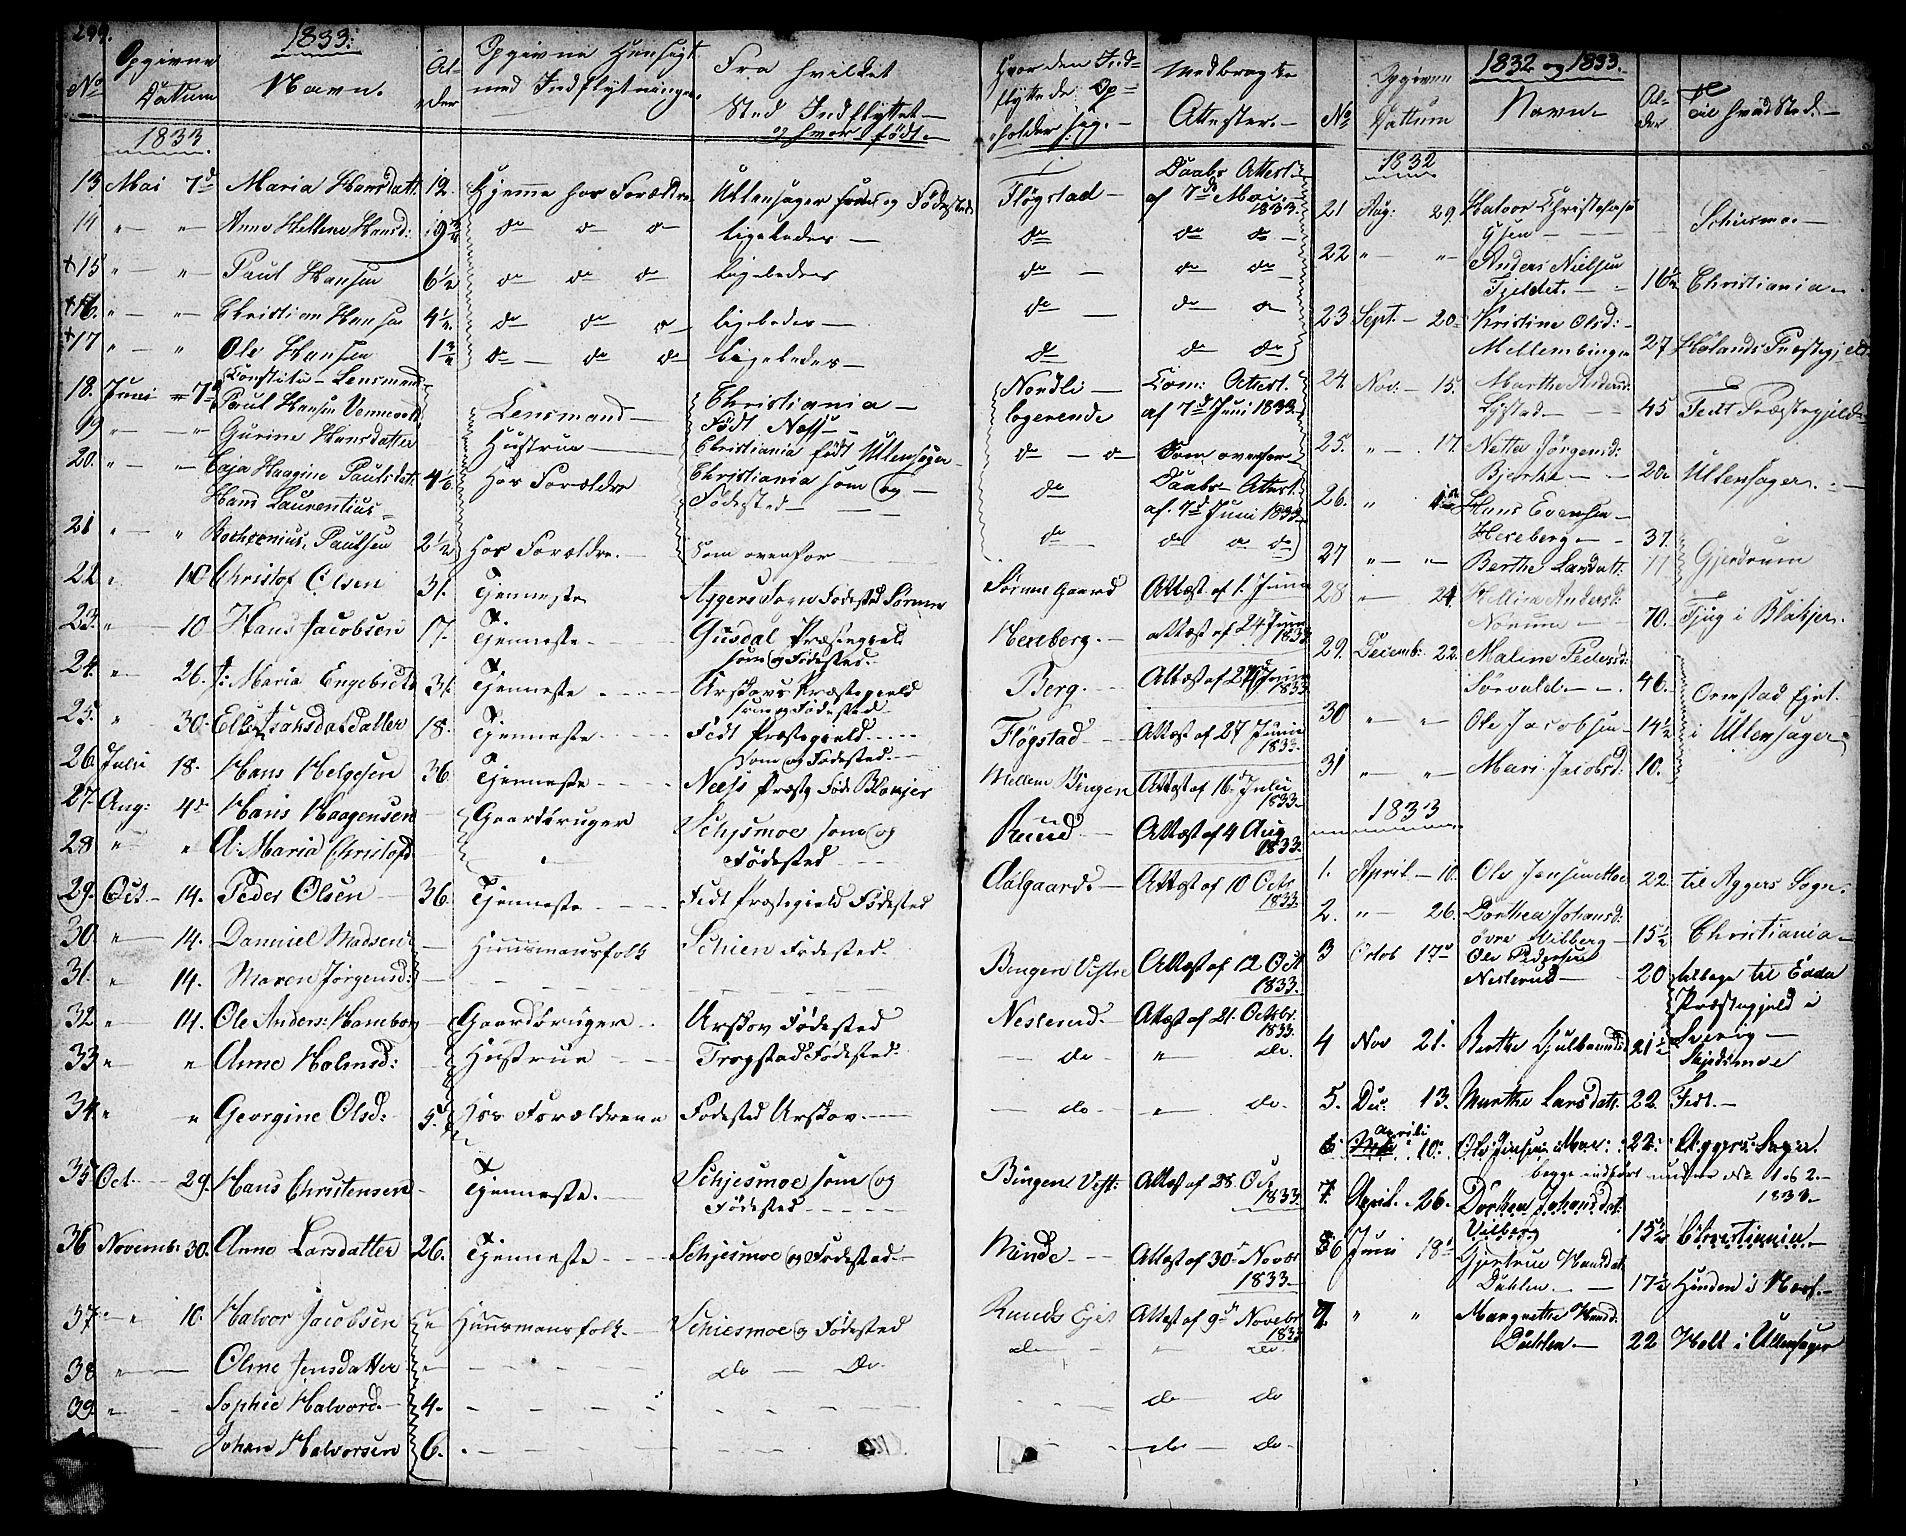 299.
1833.
No
Opgivne Datum
Navn.
Alder
Opgivne Hensigt med Indflytningen.
Fra hvilket Sted Indflyttet og hvor født.
Hvor den Indflyttede Opholder sig.
Medbragte Attester.
1833
13 Mai 7d Maria Hansdatt: 12. Hjemme hos Forældre Ullensager som og Fødested Fløgstad Daabs Attest af 7d Mai 1833.
14 " " Anne Hellene Hansd: 9 3/4 do do do ligeledes do do do
+15 " " Paul Hansen 6 1/2 do do do ligeledes do do do
+16. " " Christian Hansen 4 1/2 do do do ligeledes do do do
+17 " " Ole Hansen 1 3/4 do do do ligeledes do do do
18. Juni 7d Constitu. Lensmand Paul Hansen Lensmand Christiania Født Næss Nordli logerende Com: Attest. af 7d Juni 1833
19 " " Gurine Hansdatter Hustrue Christiania født Ullensager do do Som ovenfor
20. " " Caja Haagine Paulsdatt: 4 1/2 Hos Forældre Christiania som og Fødested do Daabs Attest af 7d Juni 1833
21 " " Hans Laurentius Paulsen 2 1/2 Hos Forældre. som ovenfor do do do do
22 " 10 Christof Olsen 31. Tjenneste Aggers Sogn Fødested Sørum Sørum Gaard Attest af 1. Juni
23. " 10 Hans Jacobsen 17. Tjenneste Præstegield som og Fødested. Herberg. Attest af 24 Juni 1833
24. " 26. Maria Engebretsd 31. Tjenneste Urskovs Præstegield som og Fødested Berg. Attest af Juni 1833
25. " 30. 18. Tjenneste Fedt Præstegield som og Fødested. Fløgstad Attest af 27 Juni 1833.
26 Julii 18. Hans Helgesen 36 Tjenneste Næss Præstg Fød Blakjer Mellem Bingen Attest af 16. Julii 1833.
27. Aug: 4d Hans Haagensen Gaardbruger Schjesmoe som og Fødested Ruud Attest af 4 Aug 1833.
28 " " A: Maria Christofd
29. Oct. 14. Peder Olsen 36. Tjenneste Fedt Præstegield Fødested Aalgaard Attest af 10 Octb 1833.
30. " 14. Danniel Madsen Huusmansfolk Schien Fødested. Bingen Vestre Attest af 12 Oct 1833.
31. " 14. Maren Jørgensd:
32 " 14. Ole Anders: Haneborg Gaardbruger Urskov Fødested Nesterud. Attest af 21. Octbr. 1833.
33 " " Anne Holmsd: Hustrue Trøgstad Fødested. do " do.
34 " " Georgine Olsd: 5 Hos Forældrene Fødested Urskov. do " do.
35 Oct. 29. Hans Christensen Tjenneste. Schjesmoe som og Fødested Bingen Vest: Attest af 28. Oct 1833.
36 Novemb: 30. Anne Larsdatter 26. Tjenneste Schjesmoe og Fødested Attest af 30 Novbr 1833
37. " 10. Halvor Jacobsen Huusmansfolk. Schiesmoe og Fødested Ruuds Ejet Attest af 9d Novebr 1833
38 " Jensdatter do do do do.
39 " Sophie Halvord. 4. do do
Johan Halvorsen 6. do do.
1832 og 1833.
No
Opgiven Dattum
Navn
Alder
Til hvad Sted.
1832
21 Aug: 29. Halvor Christofersen Schiesmoe
22 " " Anders Nielsen Fieldet. 16 1/2 Christiania
23 Sept. 20. Kristine Olsd: Mellembingen 27 Hølands Præstegjeld
24. Nov. 15. Marthe Andersd: 45 Fedt Præstegjeld
25. " 17. Nette Jørgensd: Bjerke 20. Ullensager.
26. " Hans Evensen Herberg 37. Gjerdrum
27 " " Berthe Larsdatt. 11
28 " 24. Anders: 70. i Blakjer.
29. Decemb: 22. Malene Pedersd: Sørvald 46. Ormstad Ejet. i Ullensager
30 " " Ole Jacobsen 14 1/2
31 " " Mari Jacobsd: 10.
1833
1. April 10. Ole Jensen Moe 22. til Aggers Sogn.
2. " 26. Dorthea Johansd: øvre Vilberg 15 1/2 Christiania
3 Octob 17d Ole Pedersen Nesterud 20 tilbage til Præstegjeld i Sverrig
4 Nov 21. Berthe Gulbrandsd 21 1/2 Skjedsmoe
5. Dec: 13. Marthe Larsdatt. 22. Fedt.
6 Aprili 10. Ole Jensen Moe: 22: Aggers Sogn
begge indført under No 1 & 2 1833
7. April. 26. Dorthea Johansdat. Vilberg 15 1/2 Christiania
6 Juni 18d Gjertrue Hansdat Dahlen 17 1/2 i
7. " " Margrethe Hansd: Dahlen 22 Holt i Ullensager